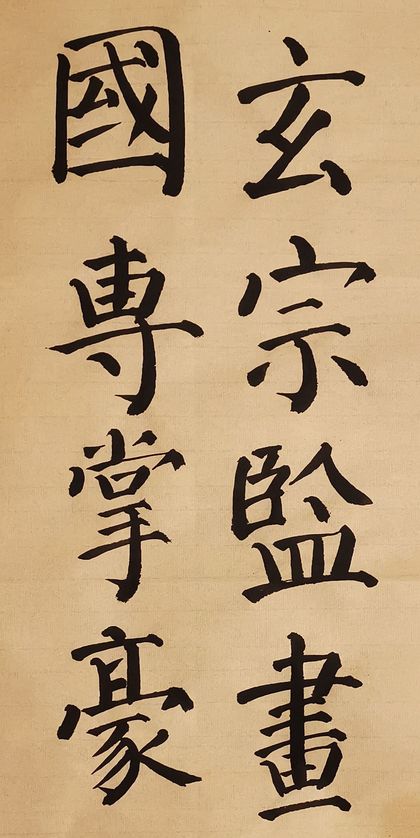 玄宗監畫
國專掌豪